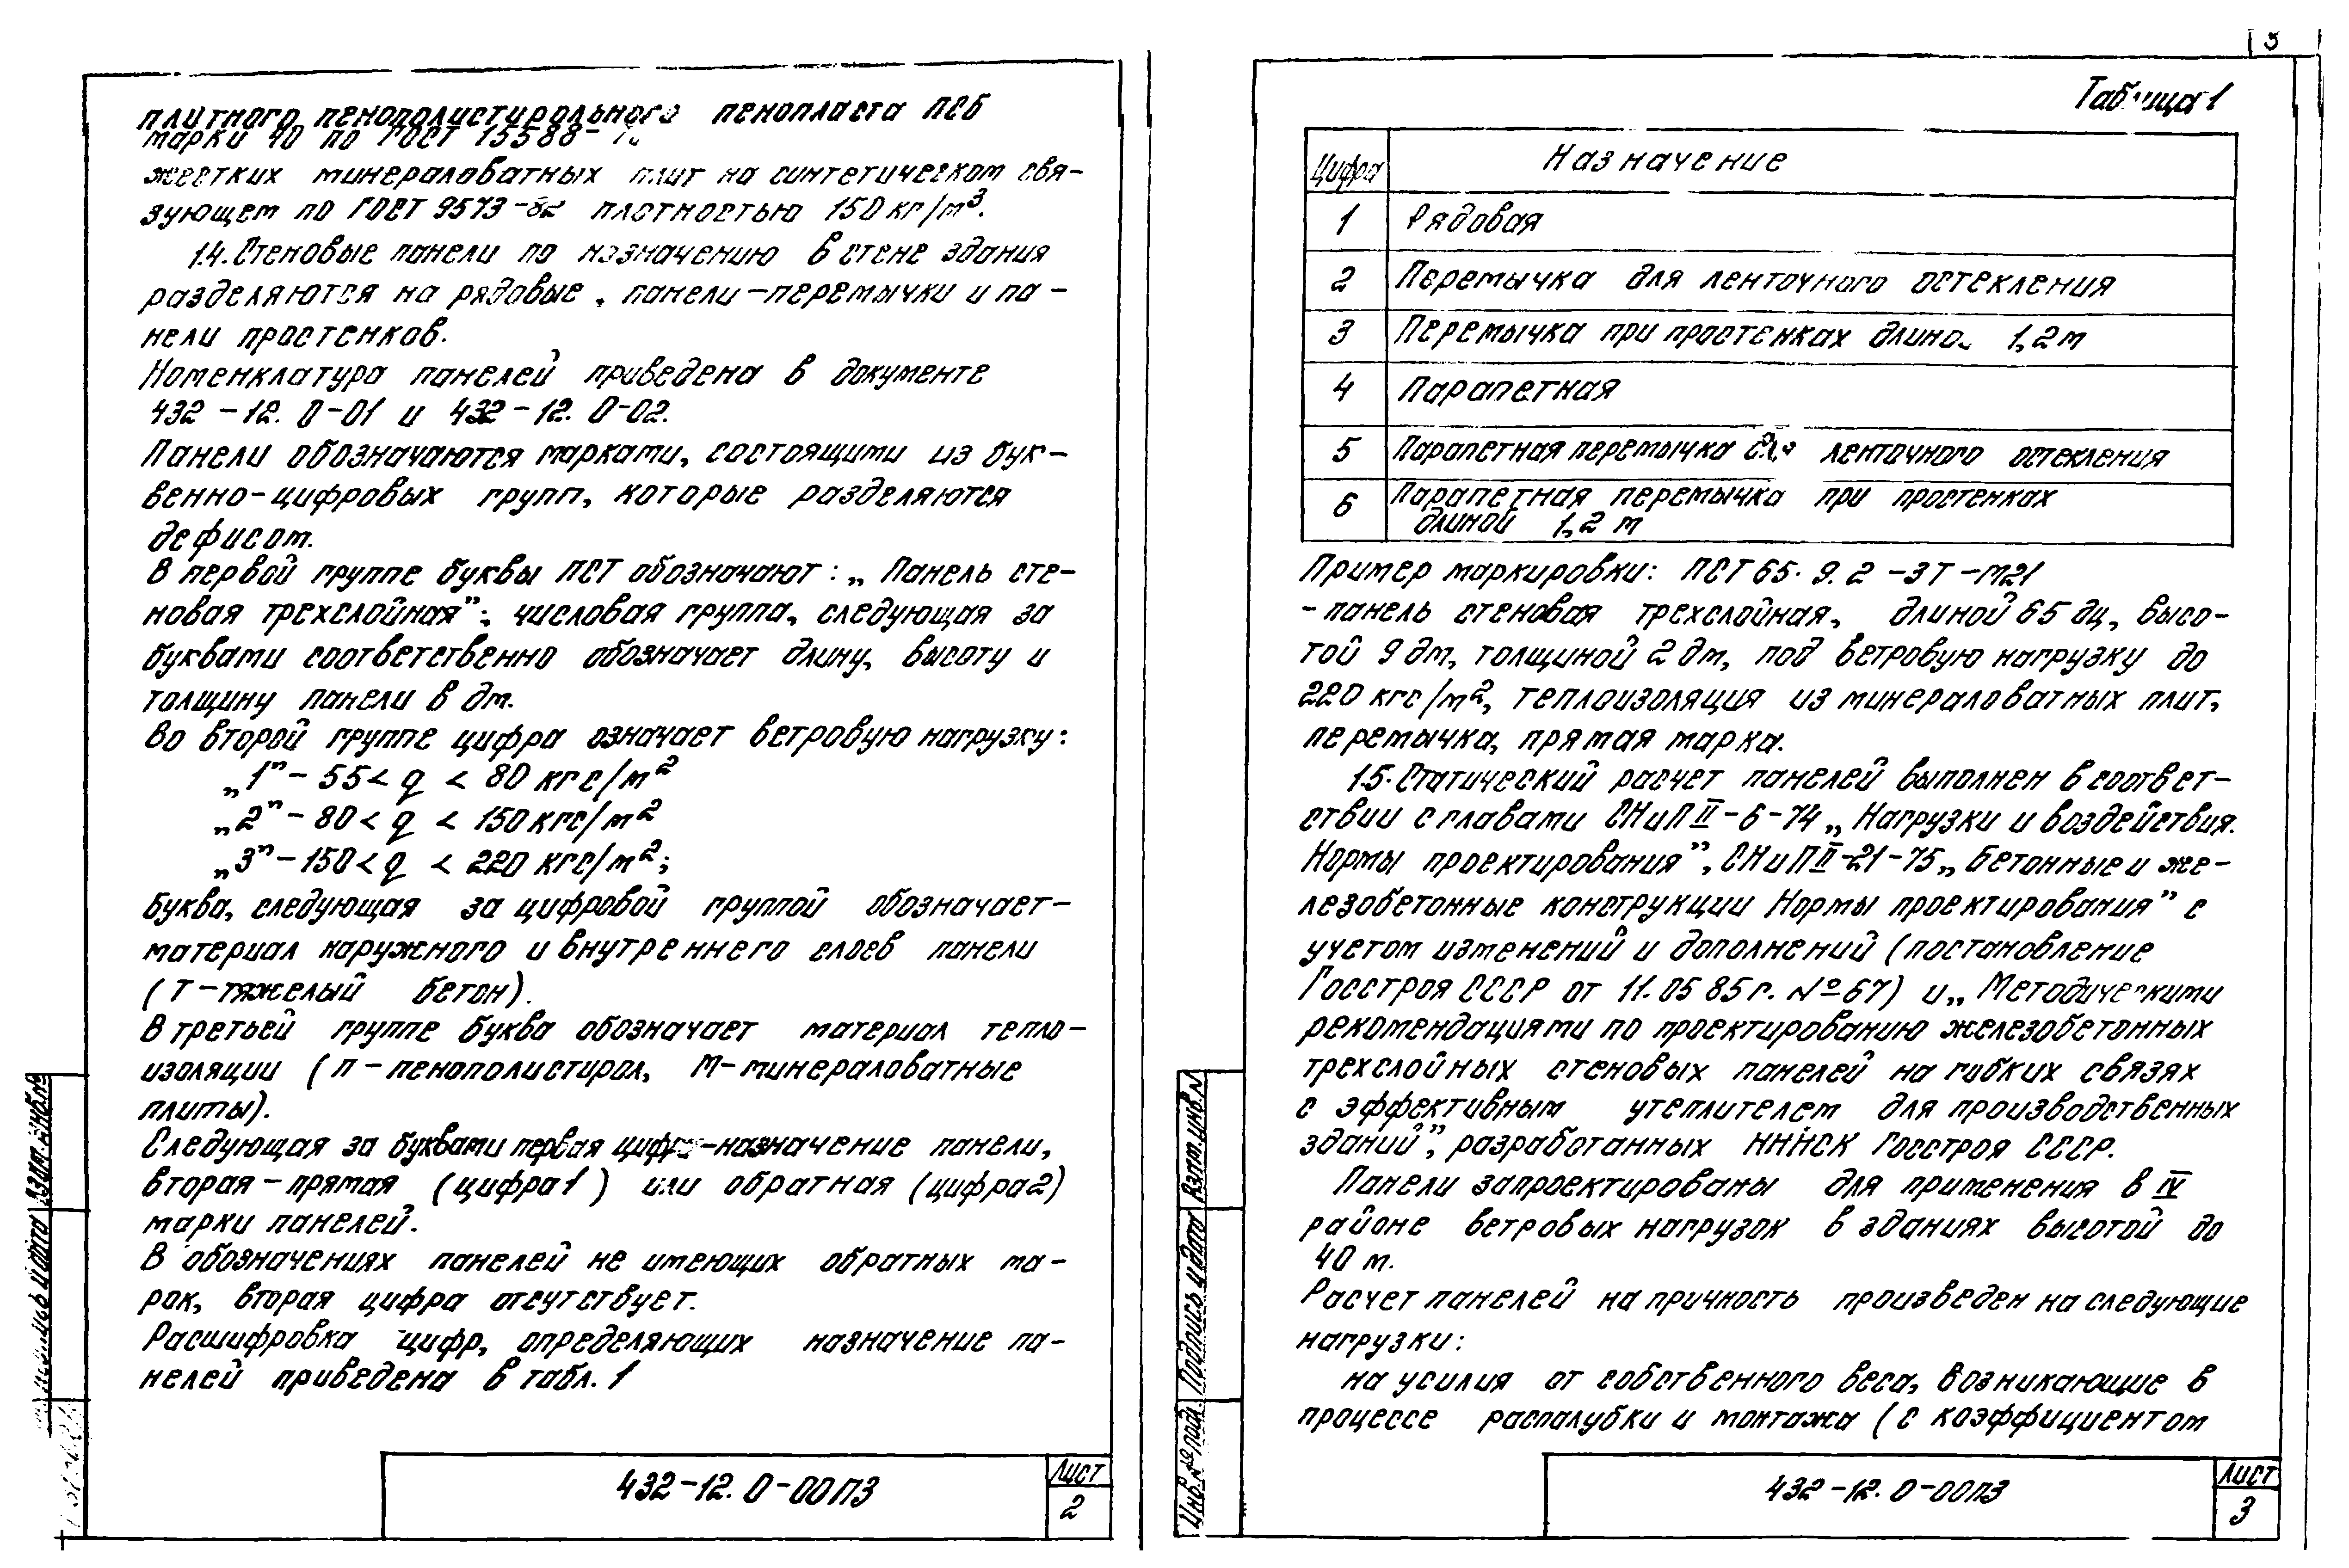 плитного пенополистирольного пенопласта ПСБ
марки 40 по ГОСТ 15588-
жестких минераловатных плит на синтетическом свя-
зующем по ГОСТ 9573-82 плотностью 150 кг/м³.
1.4. Стеновые панели по назначению в стене здания
разделяются на рядовые, панели-перемычки и па-
нели простенков.
Номенклатура панелей приведена в документе
432-12.0-01 и 432-12.0-02.
Панели обозначаются марками, состоящими из бук-
венно-цифровых групп, которые разделяются
дефисом.
В первой группе буквы ПСТ обозначают: „Панель сте-
новая трехслойная"; числовая группа, следующая за
буквами соответственно обозначает длину, высоту и
толщину панели в дм.
Во второй группе цифра означает ветровую нагрузку:
„1" - 55 < q < 80 кгс/м²
„2" - 80 < q < 150 кгс/м²
„3" - 150 < q < 220 кгс/м²;
буква, следующая за цифровой группой обозначает-
материал наружного и внутреннего слоев панели
(Т-тяжелый бетон).
В третьей группе буква обозначает материал тепло-
изоляции (П-пенополистирол, М-минераловатные
плиты).
Следующая за буквами первая цифра-назначение панели,
вторая-прямая (цифра 1) или обратная (цифра 2)
марки панелей.
В обозначениях панелей не имеющих обратных ма-
рок, вторая цифра отсутствует.
Расшифровка цифр, определяющих назначение па-
нелей приведена в табл. 1
432-12.0-00ПЗ
Лист
2
3
Таблица 1
Цифра Назначение
1 Рядовая
2 Перемычка для ленточного остекления
3 Перемычка при простенках длиной 1,2 м
4 Парапетная
5 Парапетная перемычка для ленточного остекления
6 Парапетная перемычка при простенках
длиной 1,2 м
Пример маркировки: ПСТ 65.9.2-3Т-М21
-панель стеновая трехслойная, длиной 65 дц, высо-
той 9 дм, толщиной 2 дм, под ветровую нагрузку до
220 кгс/м², теплоизоляция из минераловатных плит,
перемычка, прямая марка.
1.5. Статический расчет панелей выполнен в соответ-
ствии с главами СНиП II-6-74 „Нагрузки и воздействия.
Нормы проектирования", СНиП II-21-75 „Бетонные и же-
лезобетонные конструкции Нормы проектирования" с
учетом изменений и дополнений (постановление
Госстроя СССР от 11.05 85г. №67) и „Методическими
рекомендациями по проектированию железобетонных
трехслойных стеновых панелей на гибких связях
с эффективным утеплителем для производственных
зданий", разработанных НИИСК Госстроя СССР.
Панели запроектированы для применения в IV
районе ветровых нагрузок в зданиях высотой до
40 м.
Расчет панелей на прочность произведен на следующие
нагрузки:
на усилия от собственного веса, возникающие в
процессе распалубки и монтажа (с коэффициентом
432-12.0-00ПЗ
Лист
3
Взам. инв. №
Подпись и дата
Взам. инв. N
Подпись и дата
Инв. № подл.